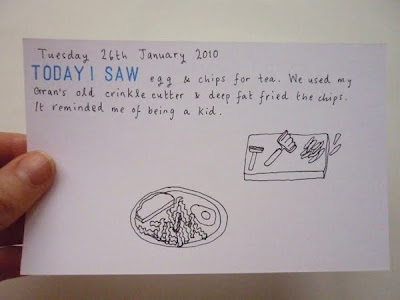 Tuesday 26th January 2010
TODAY I SAW egg & chips for tea. We used my
Gran's old crinkle cutter & deep fat fried the chips.
It reminded me of being a kid.